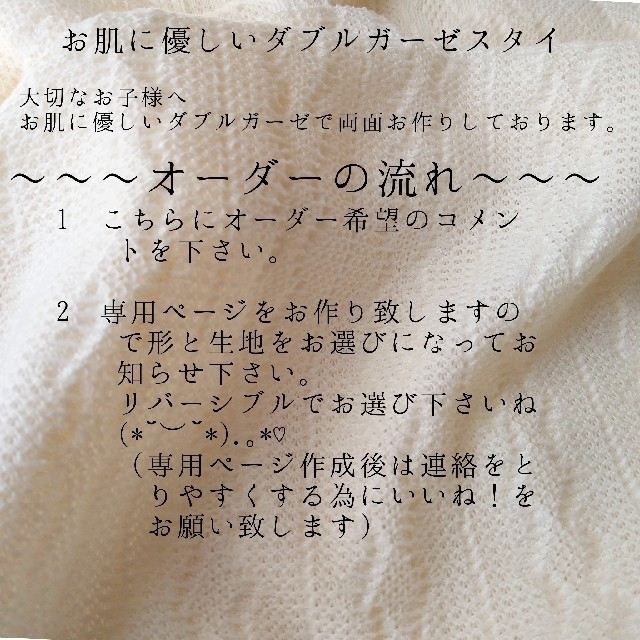 お肌に優しいダブルガーゼスタイ
大切なお子様へ
お肌に優しいダブルガーゼで両面お作りしております。
～～～オーダーの流れ～～～
1 こちらにオーダー希望のコメン
トを下さい。
2 専用ページをお作り致しますの
で形と生地をお選びになってお
知らせ下さい。
リバーシブルでお選び下さいね
(*˘︶˘*).｡*♡
（専用ページ作成後は連絡をと
りやすくする為にいいね！を
お願い致します）